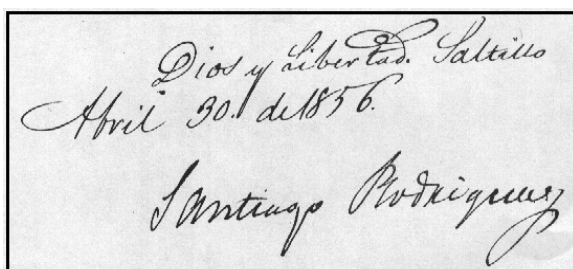 Dios y Libertad. Saltillo
Abril 30. de 1856.
Santiago Rodriguez